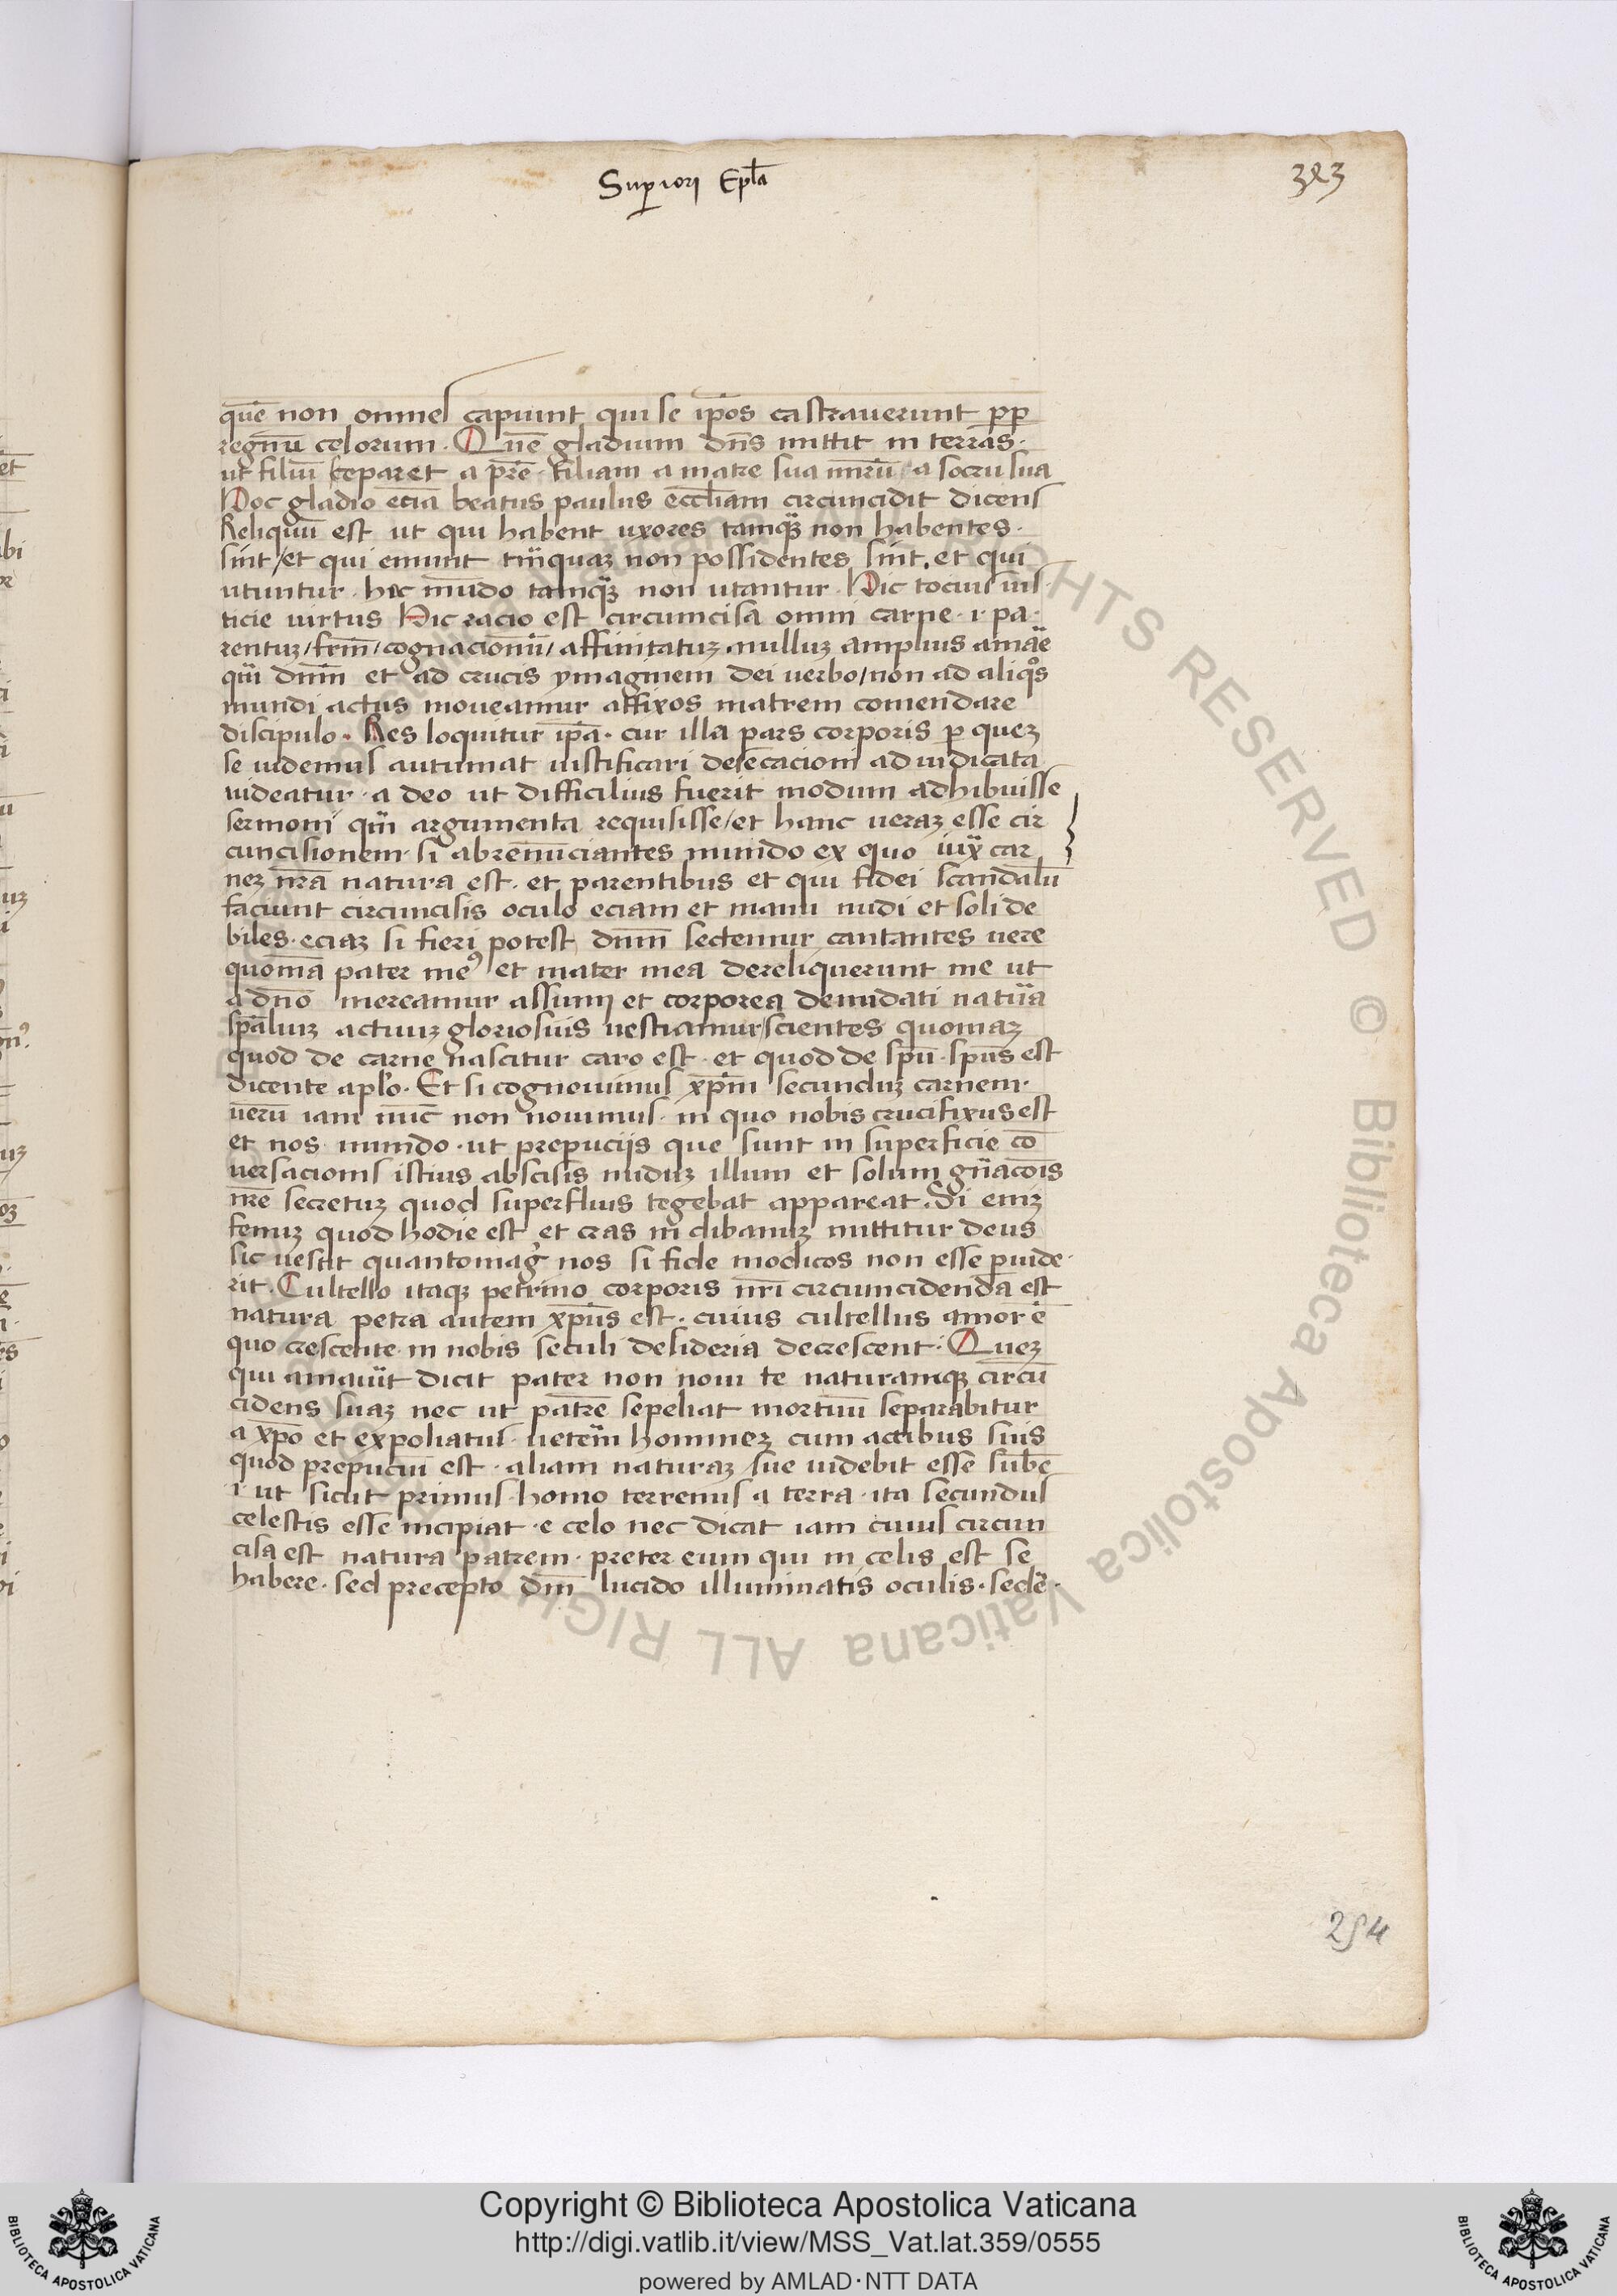 Superiori Epl̄a
323
quē non omnes capiunt qui se ip̄os castrauerunt pp
regnū celorum. Quē gladium dn̄s mittit in terras.
ut filiū separet a pr̄e. filiam a matre sua nurū a socru sua
Hoc gladio ecia beatus paulus eccl̄iam circuncidit dicens
Reliquū est ut qui habent uxores tamqȝ non habentes.
sint/et qui emunt tāquaȝ non possidentes sint. et qui
utuntur. hec mūdo tamqȝ non utantur. Hic tocius ius
ticie uirtus Hic racio est circumcisa omni carne. i. pa.
rentuȝ/fr̄m/cognacionū/affinitatuȝ. nulluȝ amplius amāe
qm̄ dn̄m et ad crucis ymaginem dei uerbo/non ad aliqos
mundi actus moueamur affixos matrem comendare
discipulo. Res loquitur ip̄a. cur illa pars corporis p queȝ
se uidemus autumat iustificari desecacioni adiudicata
uideatur. a deo ut difficilius fuerit modum adhibuisse
sermoni qm̄ argumenta requisisse/et hanc ueraȝ esse cir
cuncisionem. si abrenunciantes mundo ex quo iux̄ car
neȝ nr̄a natura est. et parentibus et qui fidei scandalū
faciunt circuncisis oculo eciam et manu nudi et soli de
biles. eciaȝ si fieri potest dn̄m sectemur cantantes uere
quoniā pater meꝰ et mater mea dereliquerunt me ut
a dn̄o mereamur assumi et corporea denudati natūa
sp̄aliuȝ actuuȝ gloriosius uestiamur/scientes quoniaȝ
quod de carne nascitur caro est. et quod de sp̄u. sp̄us est
dicente apl̄o. Et si cognouimus xp̄m secunduȝ carnem.
uerū iam nūc non nouimus. in quo nobis crucifixus est
et nos mundo. ut prepucijs que sunt in superficie cō
uersacionis istius abscisis nuduȝ illum et solum gn̄acōis
nr̄e secretuȝ quod superfluis tegebat appareat. Si eniȝ
fenuȝ quod hodie est et cras in clibanuȝ mittitur deus
sic uestit quantomag̓ nos si fide modicos non esse puide.
rit. Cultello itaqȝ petrino corporis nr̄i circuncidenda est
natura petra autem xp̄us est. cuius cultellus amor ē
quo crescente in nobis seculi desideria decrescent. Queȝ
qui amauīt dicit pater non noui te naturamqȝ circū
cidens suaȝ nec ut patrē sepeliat mortuū separabitur
a xp̄o et expoliatus ueterem homineȝ cum actibus suis
quod prepuciū est. aliam naturaȝ sue uidebit esse subē
i ut sicut primus homo terrenus a terra. ita secundus
celestis esse incipiat. e celo nec dicat iam cuius circun
cisa est natura patrem. preter eum qui in celis est se
habere. sed precepto dn̄i lucido illuminatis oculis. sedē.
254
Copyright © Biblioteca Apostolica Vaticana
http://digi.vatlib.it/view/MSS_Vat.lat.359/0555
powered by AMLAD·NTT DATA